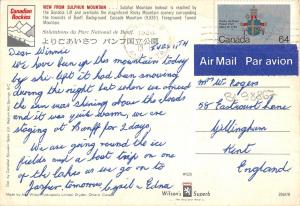 Canadian Rockies
VIEW FROM SULPHUR MOUNTAIN
Sulphur Mountain lookout is reached by
the Gondola Lift and overlooks the magnificent Rocky Mountain
townsite of Banff. Background Cascade Mountain (9,836'). Foreground Tunnel
Mountain.
Salutations du Parc National de Banff.
よりごあいさつ バンフ国立公園
Canada 64
Air Mail Par avion
Dear Winnie
We have been up this mountain today
by ski lift it had been snowing
during the night but when we arrived
the sun was shining above the clouds
and it was quite warm, we are
staying at Banff for 2 days.
We are going round the ice
fields and a boat trip on one
of the lakes as we go on to
Jasper tomorrow Cyril & Edna
Mrs W. Rogers
58 Eastcourt Lane
Gillingham
Kent
England
Wilson's Superb
Ontario, Canada